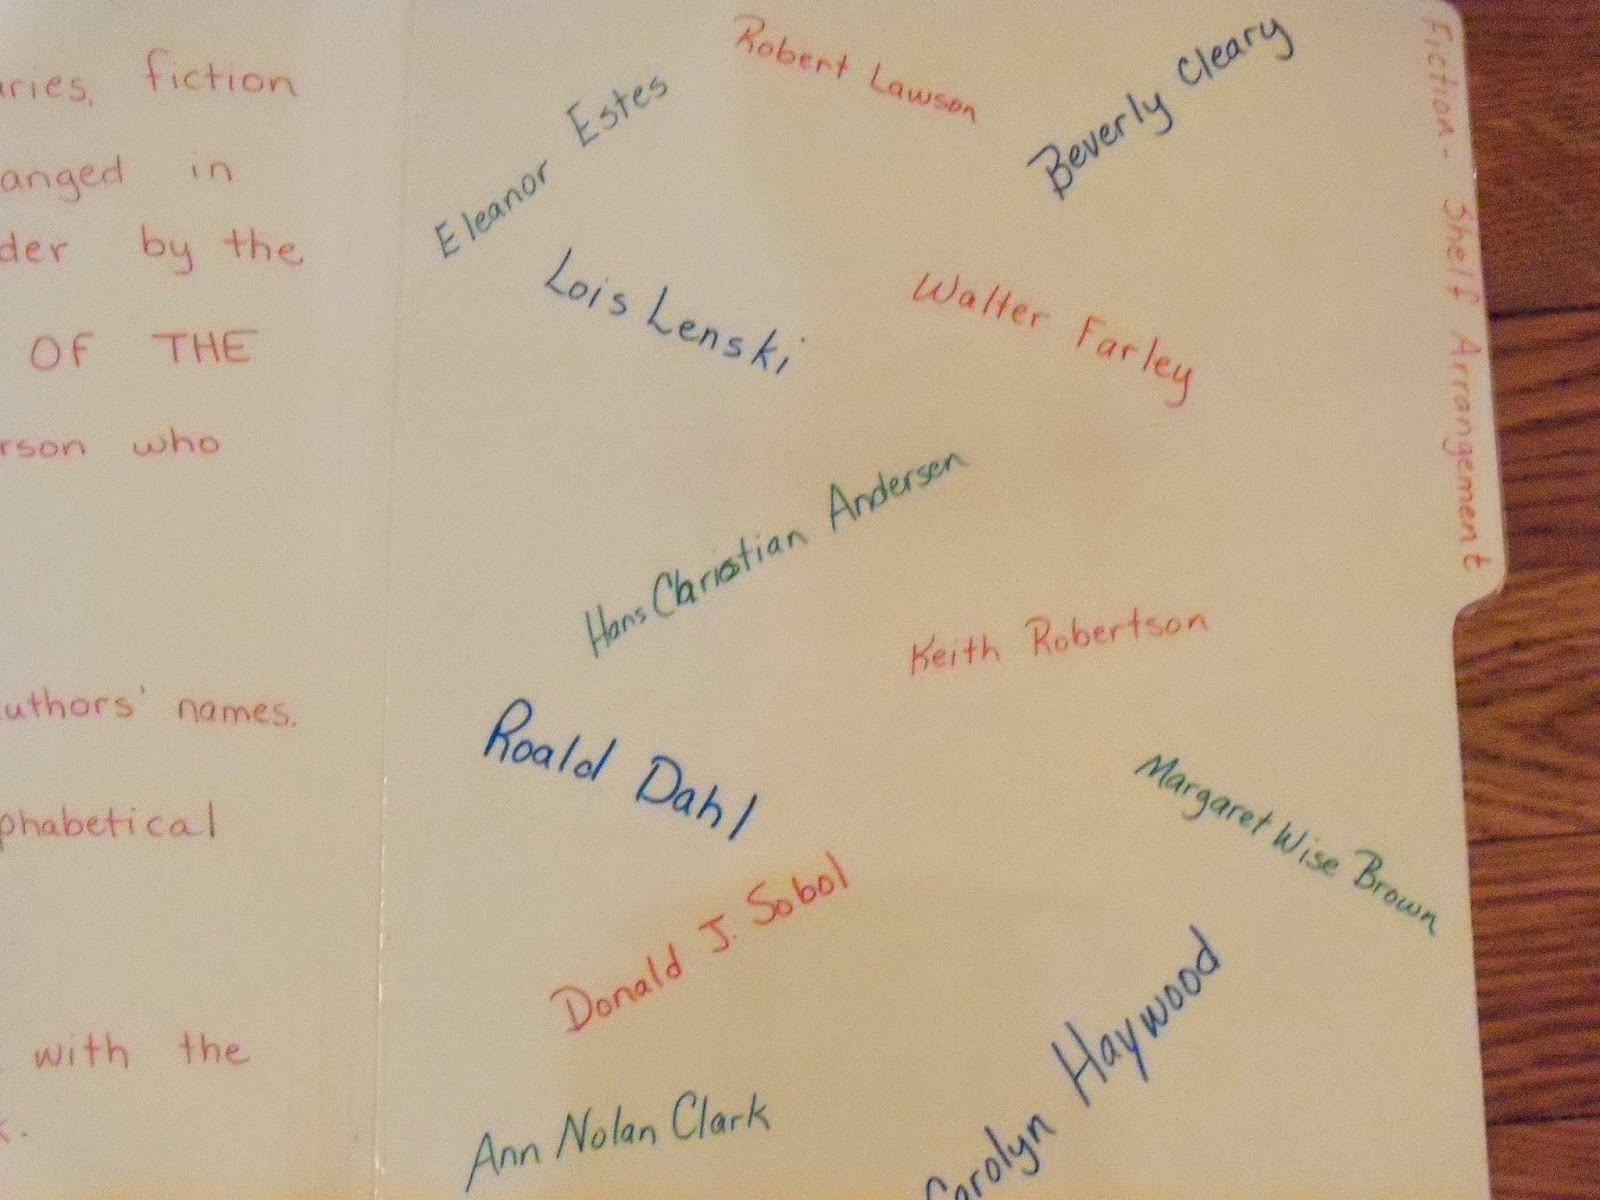 fiction
in
by the
OF THE
who
names.
with the
Robert Lawson
Beverly Cleary
Eleanor Estes
Lois Lenski
Walter Farley
Hans Christian Andersen
Keith Robertson
Roald Dahl
Margaret Wise Brown
Donald J. Sobol
Carolyn Haywood
Ann Nolan Clark
Fiction - Shelf Arrangement